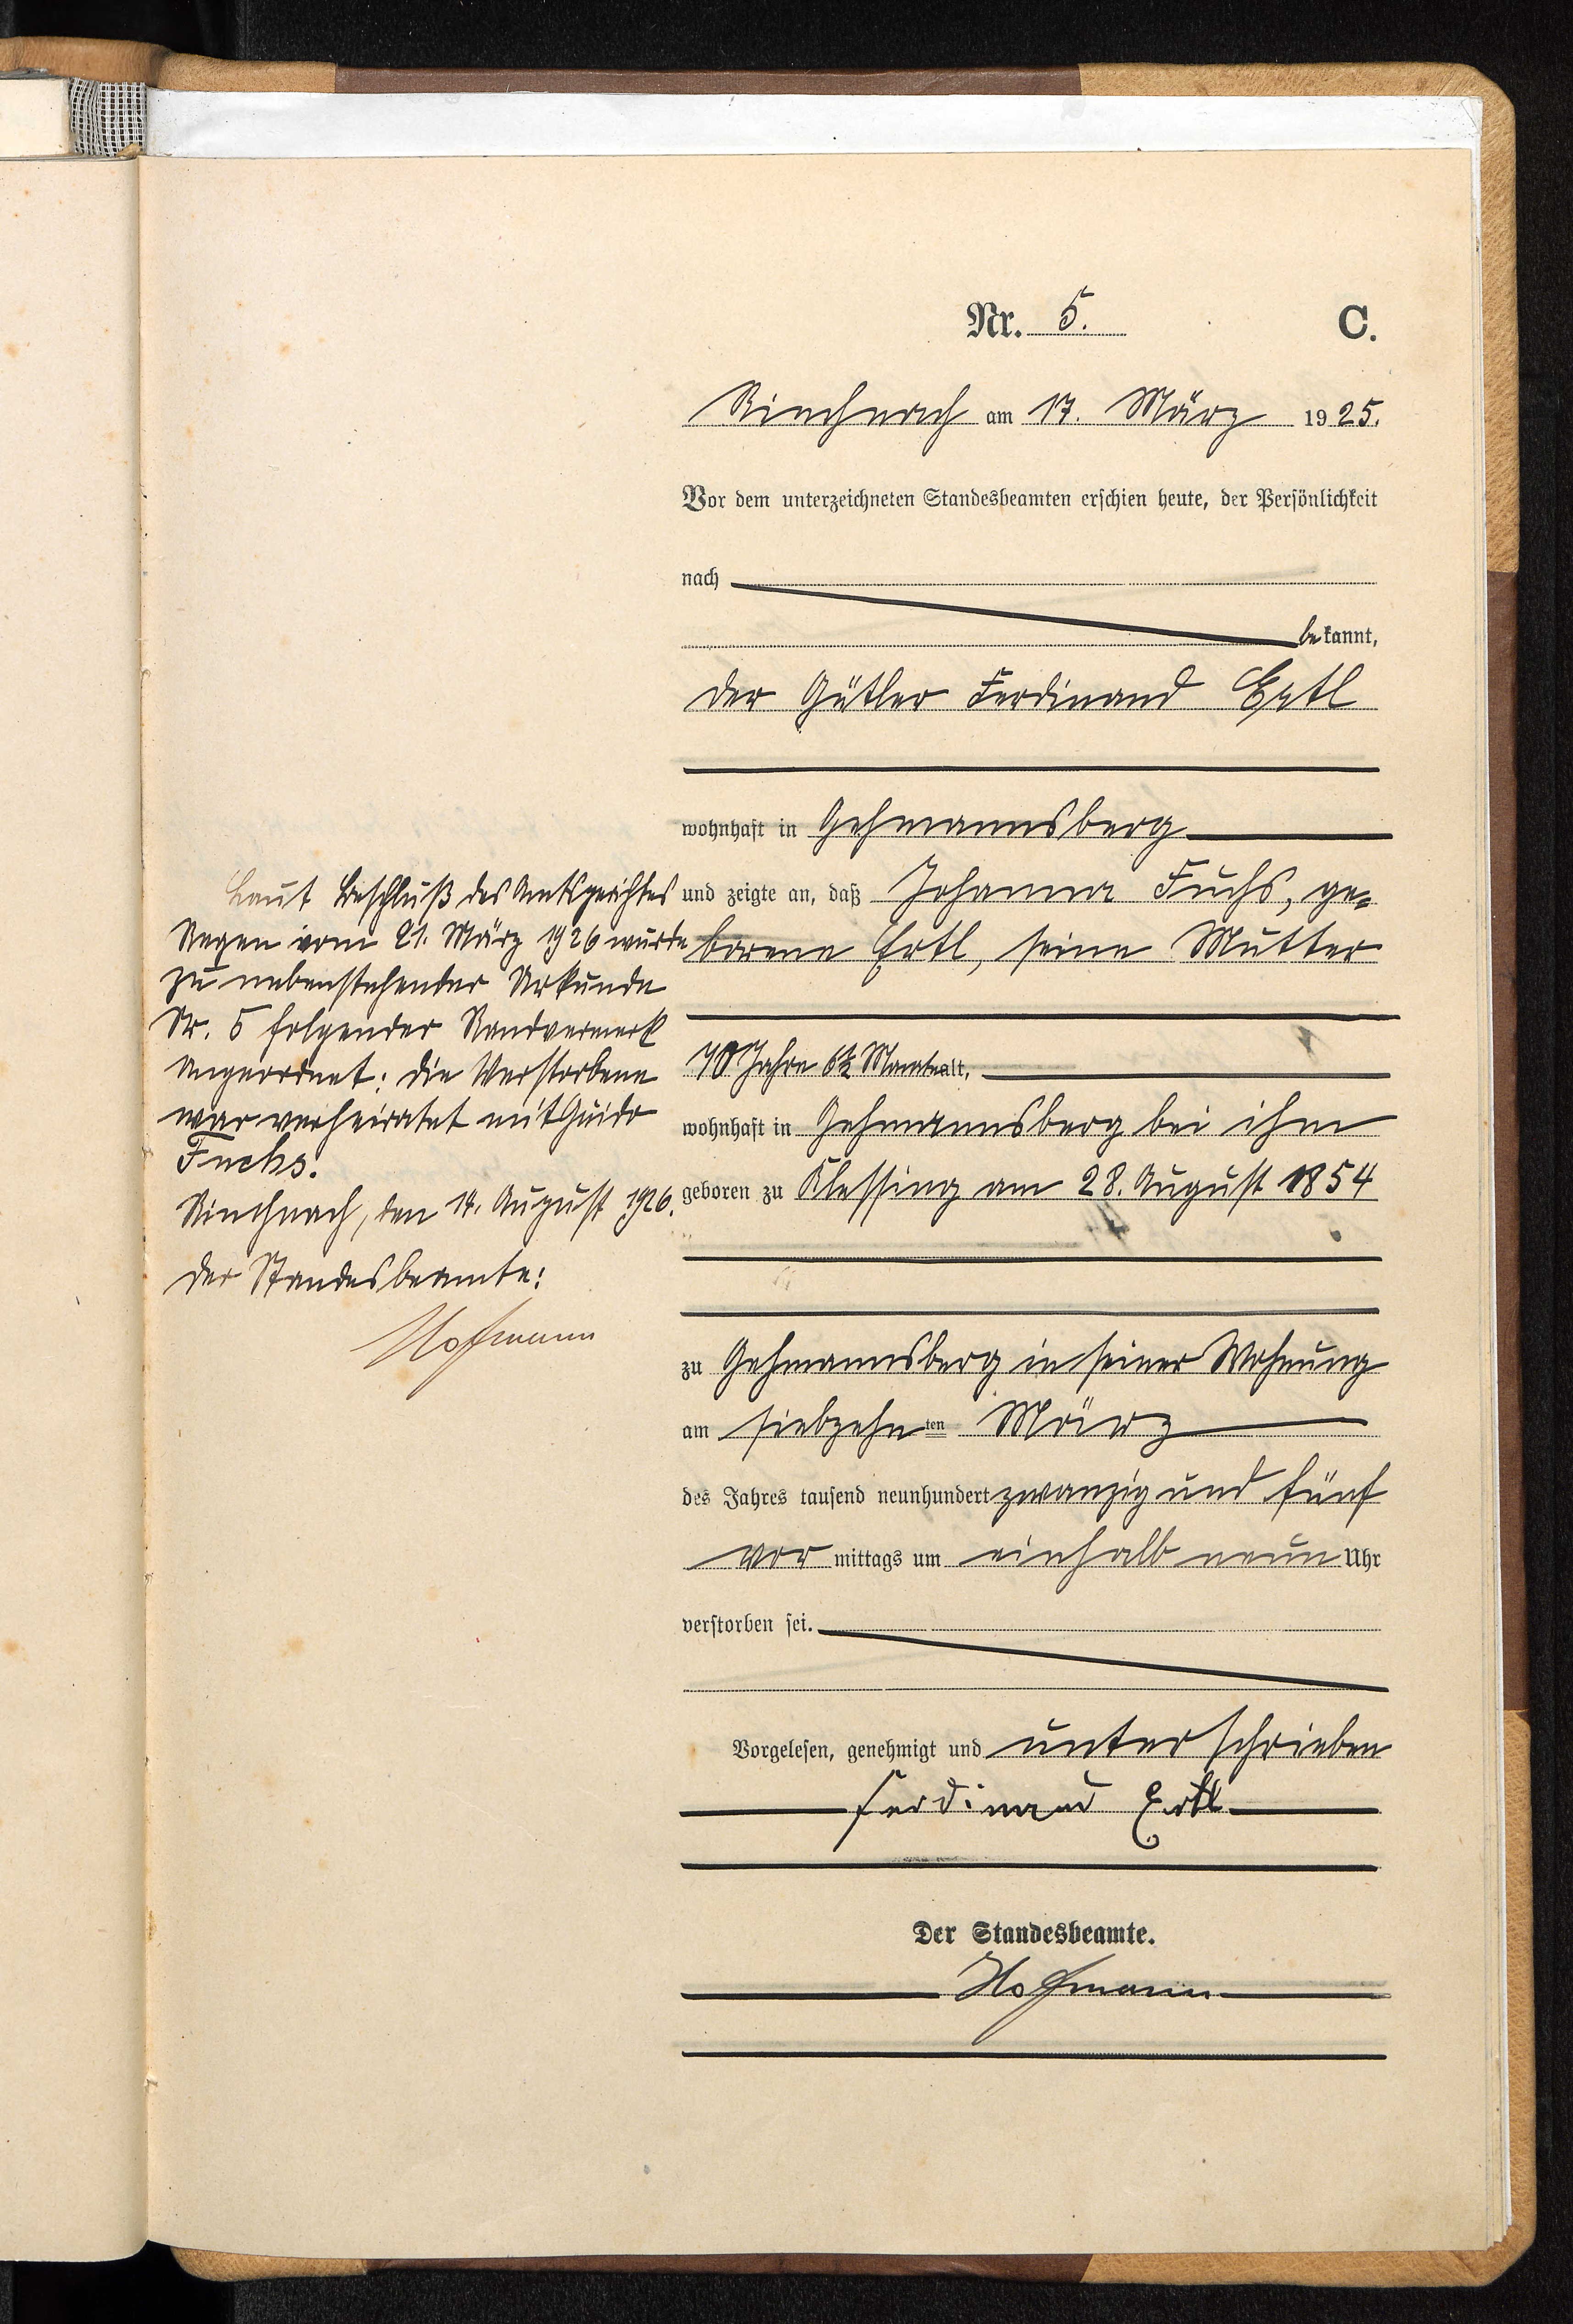 Nr. 5.
C.
Rinchnach am 17. März 1925.
Vor dem unterzeichneten Standesbeamten erschien heute, der Persönlichkeit
nach
bekannt,
der Gütler Ferdinand Ertl
wohnhaft in Gehmannsberg
und zeigte an, daß Johanna Fuchs, ge-
borene Ertl, seine Mutter
70 Jahre 6½ Monate alt,
wohnhaft in Gehmannsberg bei ihm
geboren zu Klessing am 28. August 1854
zu Gehmannsberg in seiner Wohnung
am siebzehnten März
des Jahres tausend neunhundert zwanzig und fünf
vormittags um einhalb neun Uhr
verstorben sei.
Vorgelesen, genehmigt und unterschrieben
Ferdinand Ertl
Der Standesbeamte.
Hofmann
Laut Beschluß des Amtsgerichtes
Regen vom 21. März 1926 wurde
zu nebenstehender Urkunde
Nr. 5 folgender Randvermerk
angeordnet: die Verstorbene
war verheiratet mit Guido
Fuchs.
Rinchnach, den 14. August 1926.
Der Standesbeamte:
Hofmann